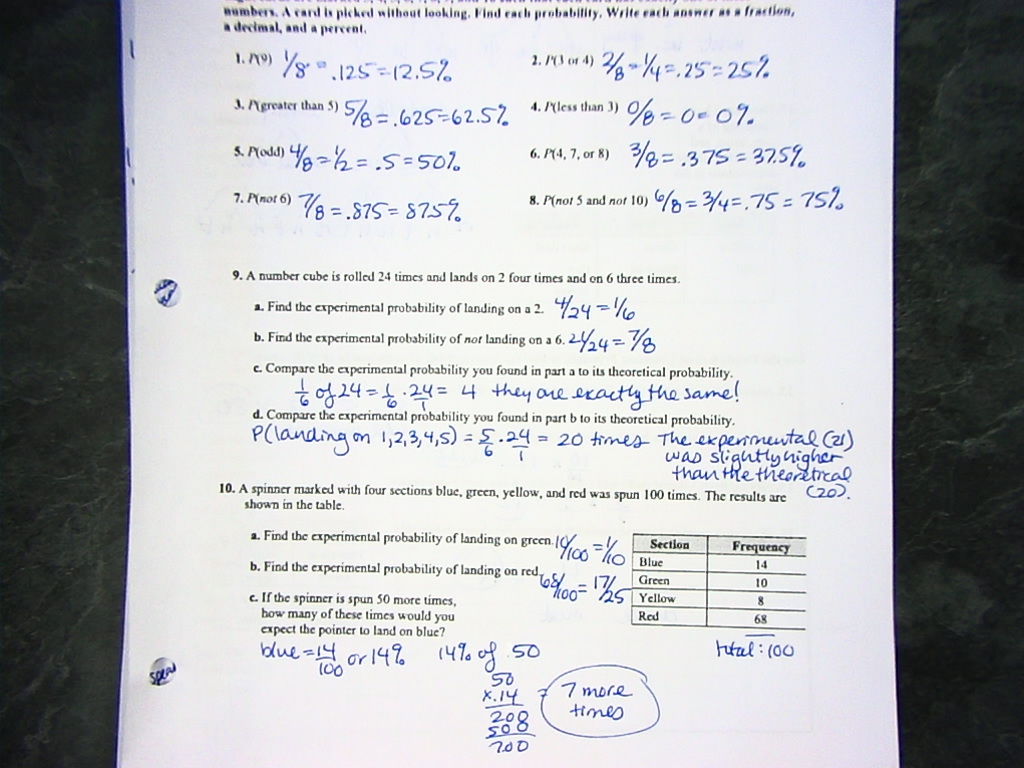 numbers. A card is picked without looking. Find each probability. Write each answer as a fraction,
a decimal, and a percent.
1. P(9) 1/8 = .125 = 12.5%
2. P(3 or 4) 2/8 = 1/4 = .25 = 25%
3. P(greater than 5) 5/8 = .625 = 62.5%
4. P(less than 3) 0/8 = 0 = 0%
5. P(odd) 4/8 = 1/2 = .5 = 50%
6. P(4, 7, or 8) 3/8 = .375 = 37.5%
7. P(not 6) 7/8 = .875 = 87.5%
8. P(not 5 and not 10) 6/8 = 3/4 = .75 = 75%
9. A number cube is rolled 24 times and lands on 2 four times and on 6 three times.
a. Find the experimental probability of landing on a 2. 4/24 = 1/6
b. Find the experimental probability of not landing on a 6. 21/24 = 7/8
c. Compare the experimental probability you found in part a to its theoretical probability.
1/6 of 24 = 1/6 · 24/1 = 4 they are exactly the same!
d. Compare the experimental probability you found in part b to its theoretical probability.
P(landing on 1,2,3,4,5) = 5/6 · 24/1 = 20 times The experimental (21)
was slightly higher
than the theoretical
(20).
10. A spinner marked with four sections blue, green, yellow, and red was spun 100 times. The results are
shown in the table.
a. Find the experimental probability of landing on green. 10/100 = 1/10
b. Find the experimental probability of landing on red. 68/100 = 17/25
c. If the spinner is spun 50 more times,
how many of these times would you
expect the pointer to land on blue?
Section Frequency
Blue 14
Green 10
Yellow 8
Red 68
total: 100
blue = 14/100 or 14% 14% of 50
50
x.14
200
500
700
= 7 more
times